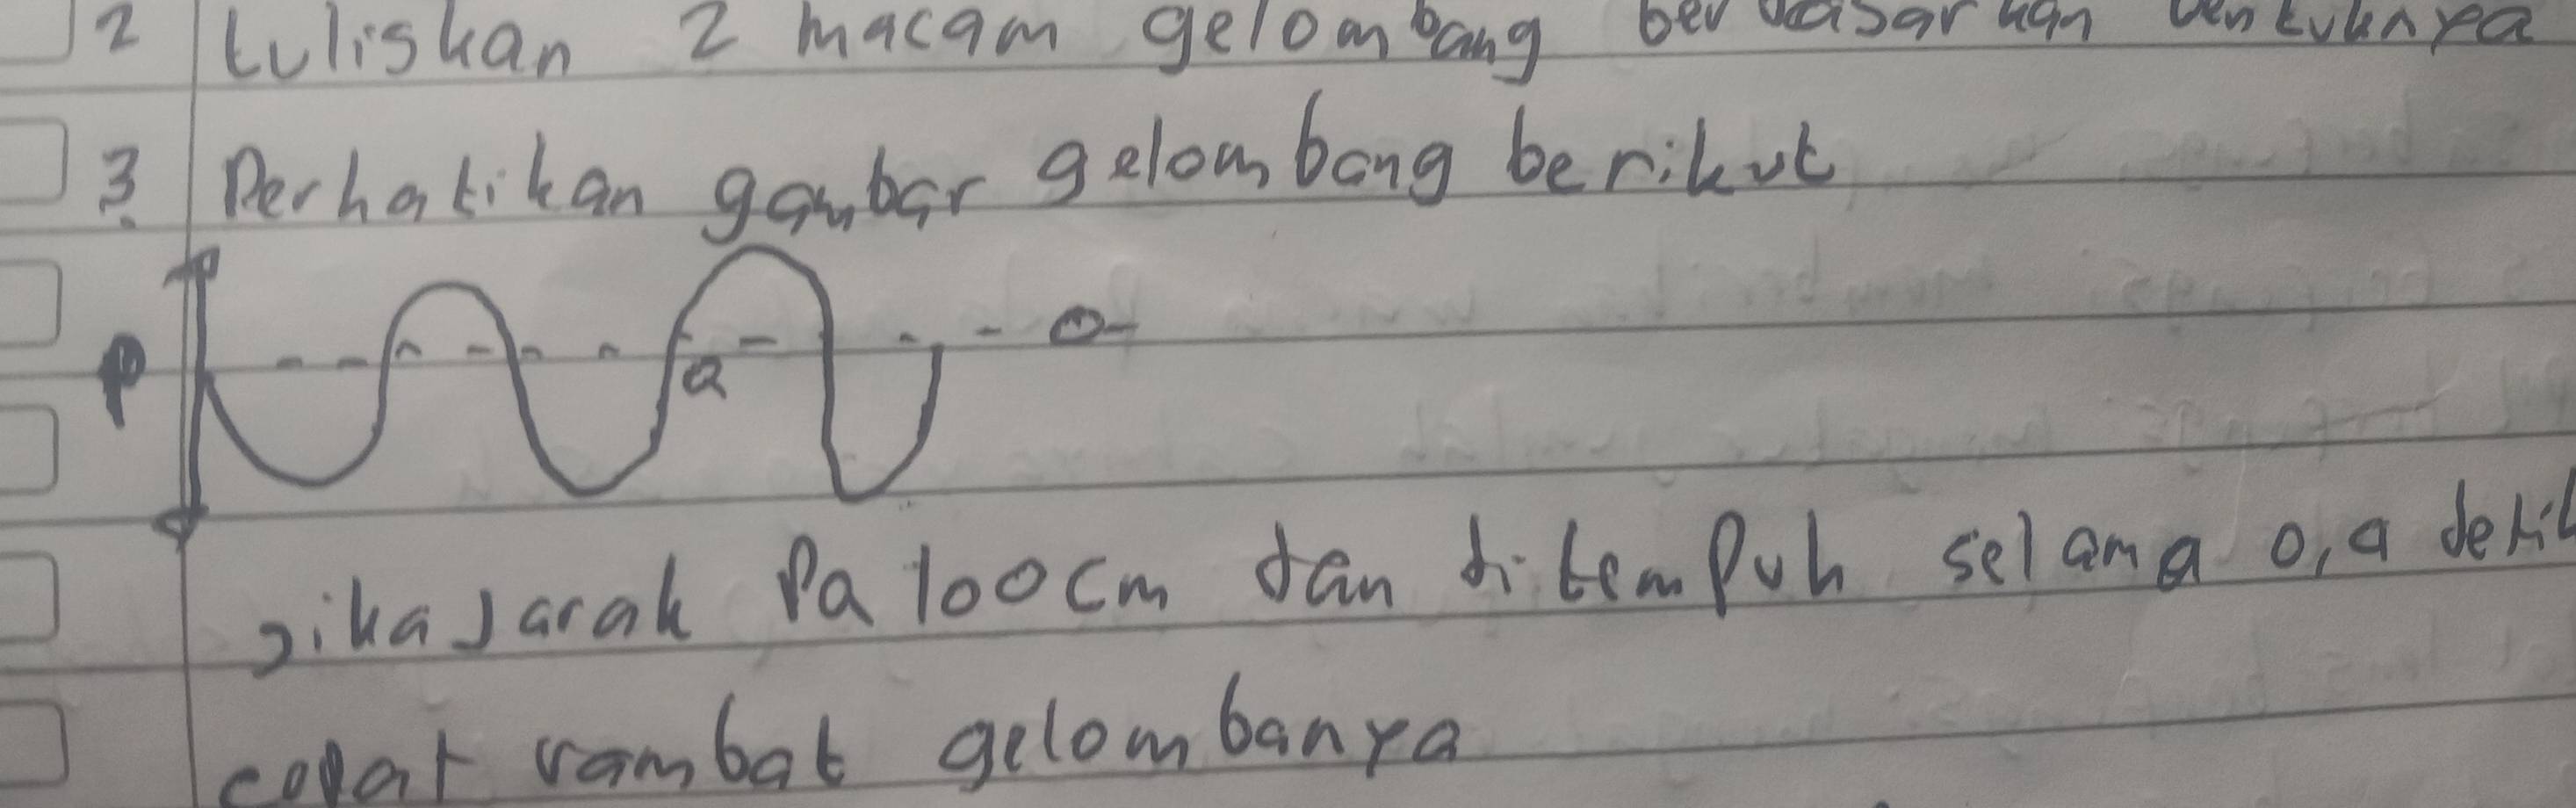 2 tuliskan 2 macam gelombang berdasarkan bentuknya
3. Perhatikan gambar gelombang berikut
P
a
jika Jarak Pa 100 cm dan ditempuh selama 0,9 detik
cepat rambat gelombanya